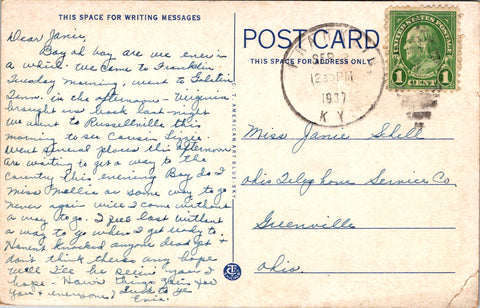 THIS SPACE FOR WRITING MESSAGES
Dear Janie,
Boy oh boy are we ever in
a whirl. We came to Franklin
Tuesday morning, went to
Tenn. in the afternoon - Virginia
brought us back last night
We went to Russellville this
morning to see Cousin
Went several places this afternoon
are waiting to get a way to the
country this evening Boy do I
miss Nellis or some way to go
never again will I come without
a way to go. I feel lost without
a way to go when I get ready to.
Haven't knocked anyone dead yet &
don't think theres any hope
Well I'll be seein' you I
hope - How's things
you & everyone? Luck to ye
POST CARD
THIS SPACE FOR ADDRESS ONLY
SEP
12 30 PM
1937
KY.
UNITED STATES POSTAGE
FRANKLIN
1 CENT 1
Miss Janie
Ohio Telephone Service Co.
Greenville
Ohio.
C.T. AMERICAN ART